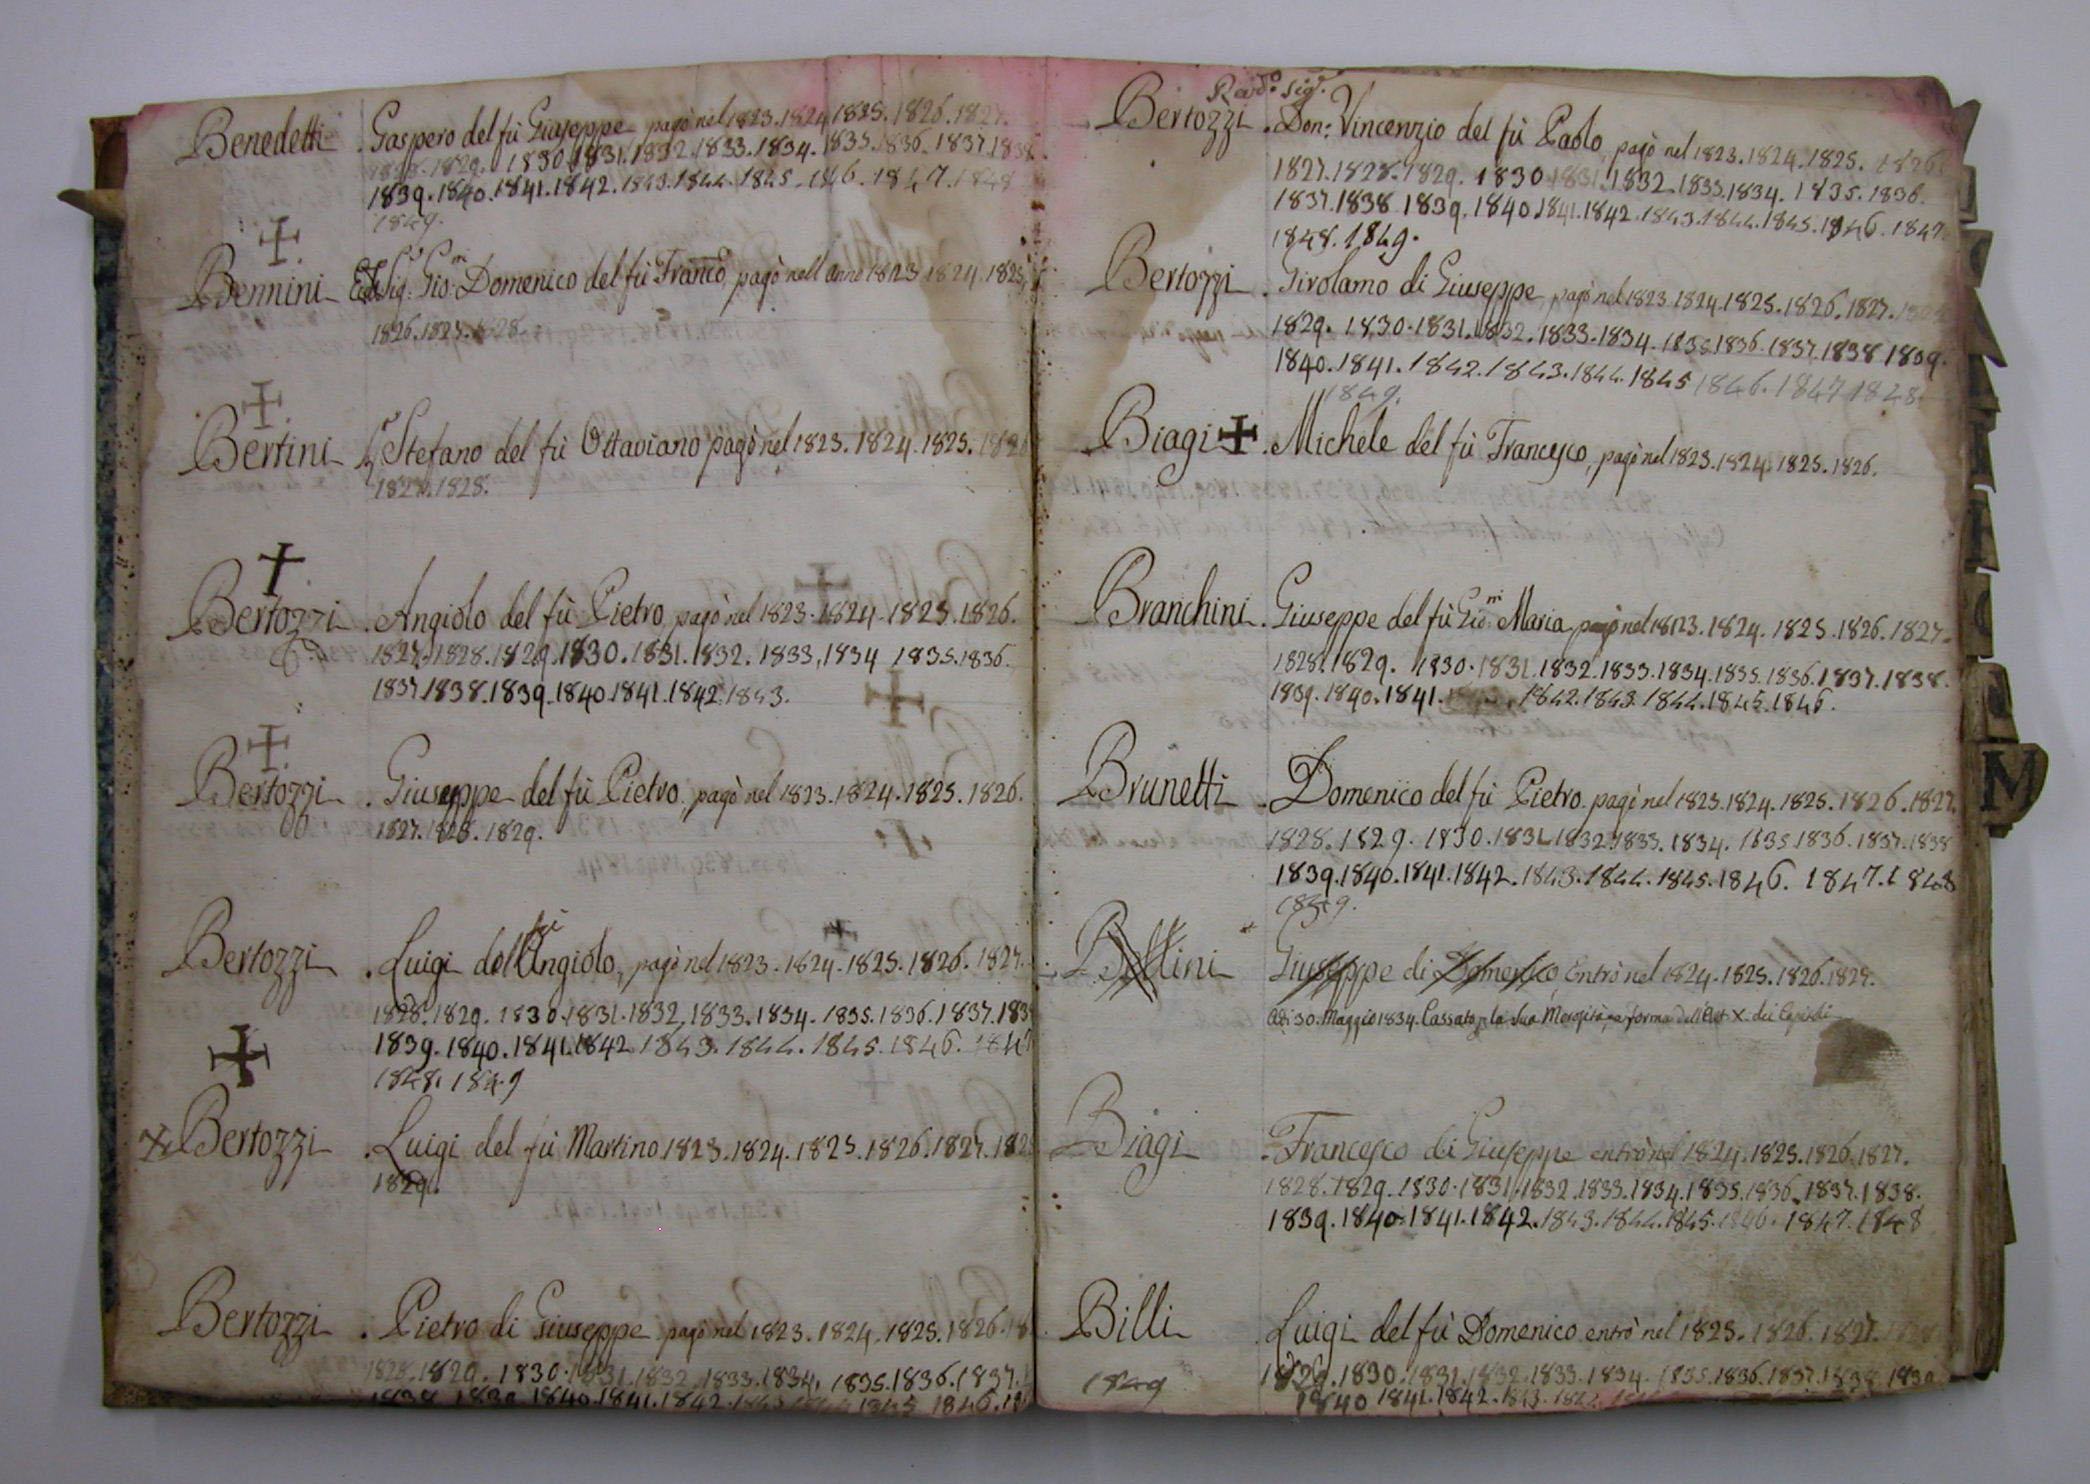 Benedetti . Gaspero del fù Giuseppe pagò nel 1823.1824.1825.1826.1827.
1828.1829. 1830.1831.1832.1833.1834.1835.1836.1837.1838
1839.1840.1841.1842.1843.1844.1845.1846.1847.1848
1849.
Bennini Sig: Gio: Domenico del fù Franco pagò nell anno 1823.1824.1825
1826.1827.1828.
Bertini Stefano del fù Ottaviano pagò nel 1823.1824.1825.1826
1827.1828.
Bertozzi . Angiolo del fù Pietro, pagò nel 1823.1824.1825.1826.
1827.1828.1829.1830.1831.1832.1833.1834 1835.1836.
1837.1838.1839.1840.1841.1842.1843.
Bertozzi . Giuseppe del fù Pietro, pagò nel 1823.1824.1825.1826.
1827.1828.1829.
Bertozzi . Luigi del fù Angiolo, pagò nel 1823.1824.1825.1826.1827.
1828.1829.1830.1831.1832.1833.1834.1835.1836.1837.183
1839.1840.1841.1842 1843.1844.1845.1846.1847
1848.1849
Bertozzi . Luigi del fù Martino 1823.1824.1825.1826.1827.182
1829.
Bertozzi . Pietro di Giuseppe pagò nel 1823.1824.1825.1826.18
1828.1829.1830.1831.1832.1833.1834.1835.1836.1837.
1838.1839.1840.1841.1842.1843 1845 1846.
Revdo: Sigr.
Bertozzi . Don: Vincenzio del fù Paolo, pagò nel 1823.1824.1825.1826
1827.1828.1829.1830.1831.1832.1833.1834.1835.1836.
1837.1838 1839.1840.1841.1842.1843.1844.1845.1846.1847
1848.1849.
Bertozzi . Girolamo di Giuseppe, pagò nel 1823.1824.1825.1826.1827.
1829.1830.1831.1832.1833.1834.1835.1836.1837.1838 1839.
1840.1841.1842.1843.1844.1845 1846.1847 1848
1849.
Biagi . Michele del fù Francesco, pagò nel 1823.1824.1825.1826.
Branchini . Giuseppe del fù Gio: Maria pagò nel 1823.1824.1825.1826.1827.
1828.1829.1830.1831.1832.1833.1834.1835.1836.1837.1838.
1839.1840.1841. 1842.1843.1844.1845.1846.
Brunetti . Domenico del fù Pietro pagò nel 1823.1824.1825.1826.1827.
1828.1829.1830.1831.1832.1833.1834.1835.1836.1837.1838
1839.1840.1841.1842.1843.1844.1845.1846.1847.1848
1849.
Bellini Giuseppe di Domenico, Entrò nel 1824.1825.1826.1827.
Adi 30. Maggio 1834. Cassato la Sua forma dell'Art. X. dei Capitoli
Biagi . Francesco di Giuseppe entrò nel 1824.1825.1826.1827.
1828.1829.1830.1831.1832.1833.1834.1835.1836.1837.1838.
1839.1840.1841.1842.1843.1844.1845.1846.1847.1848
Billi . Luigi del fù Domenico entrò nel 1825.1826.1827.1828
1829.1830.1831.1832.1833.1834.1835.1836.1837.1838.1839
1849 1840 1841.1842.1843.1844.
M